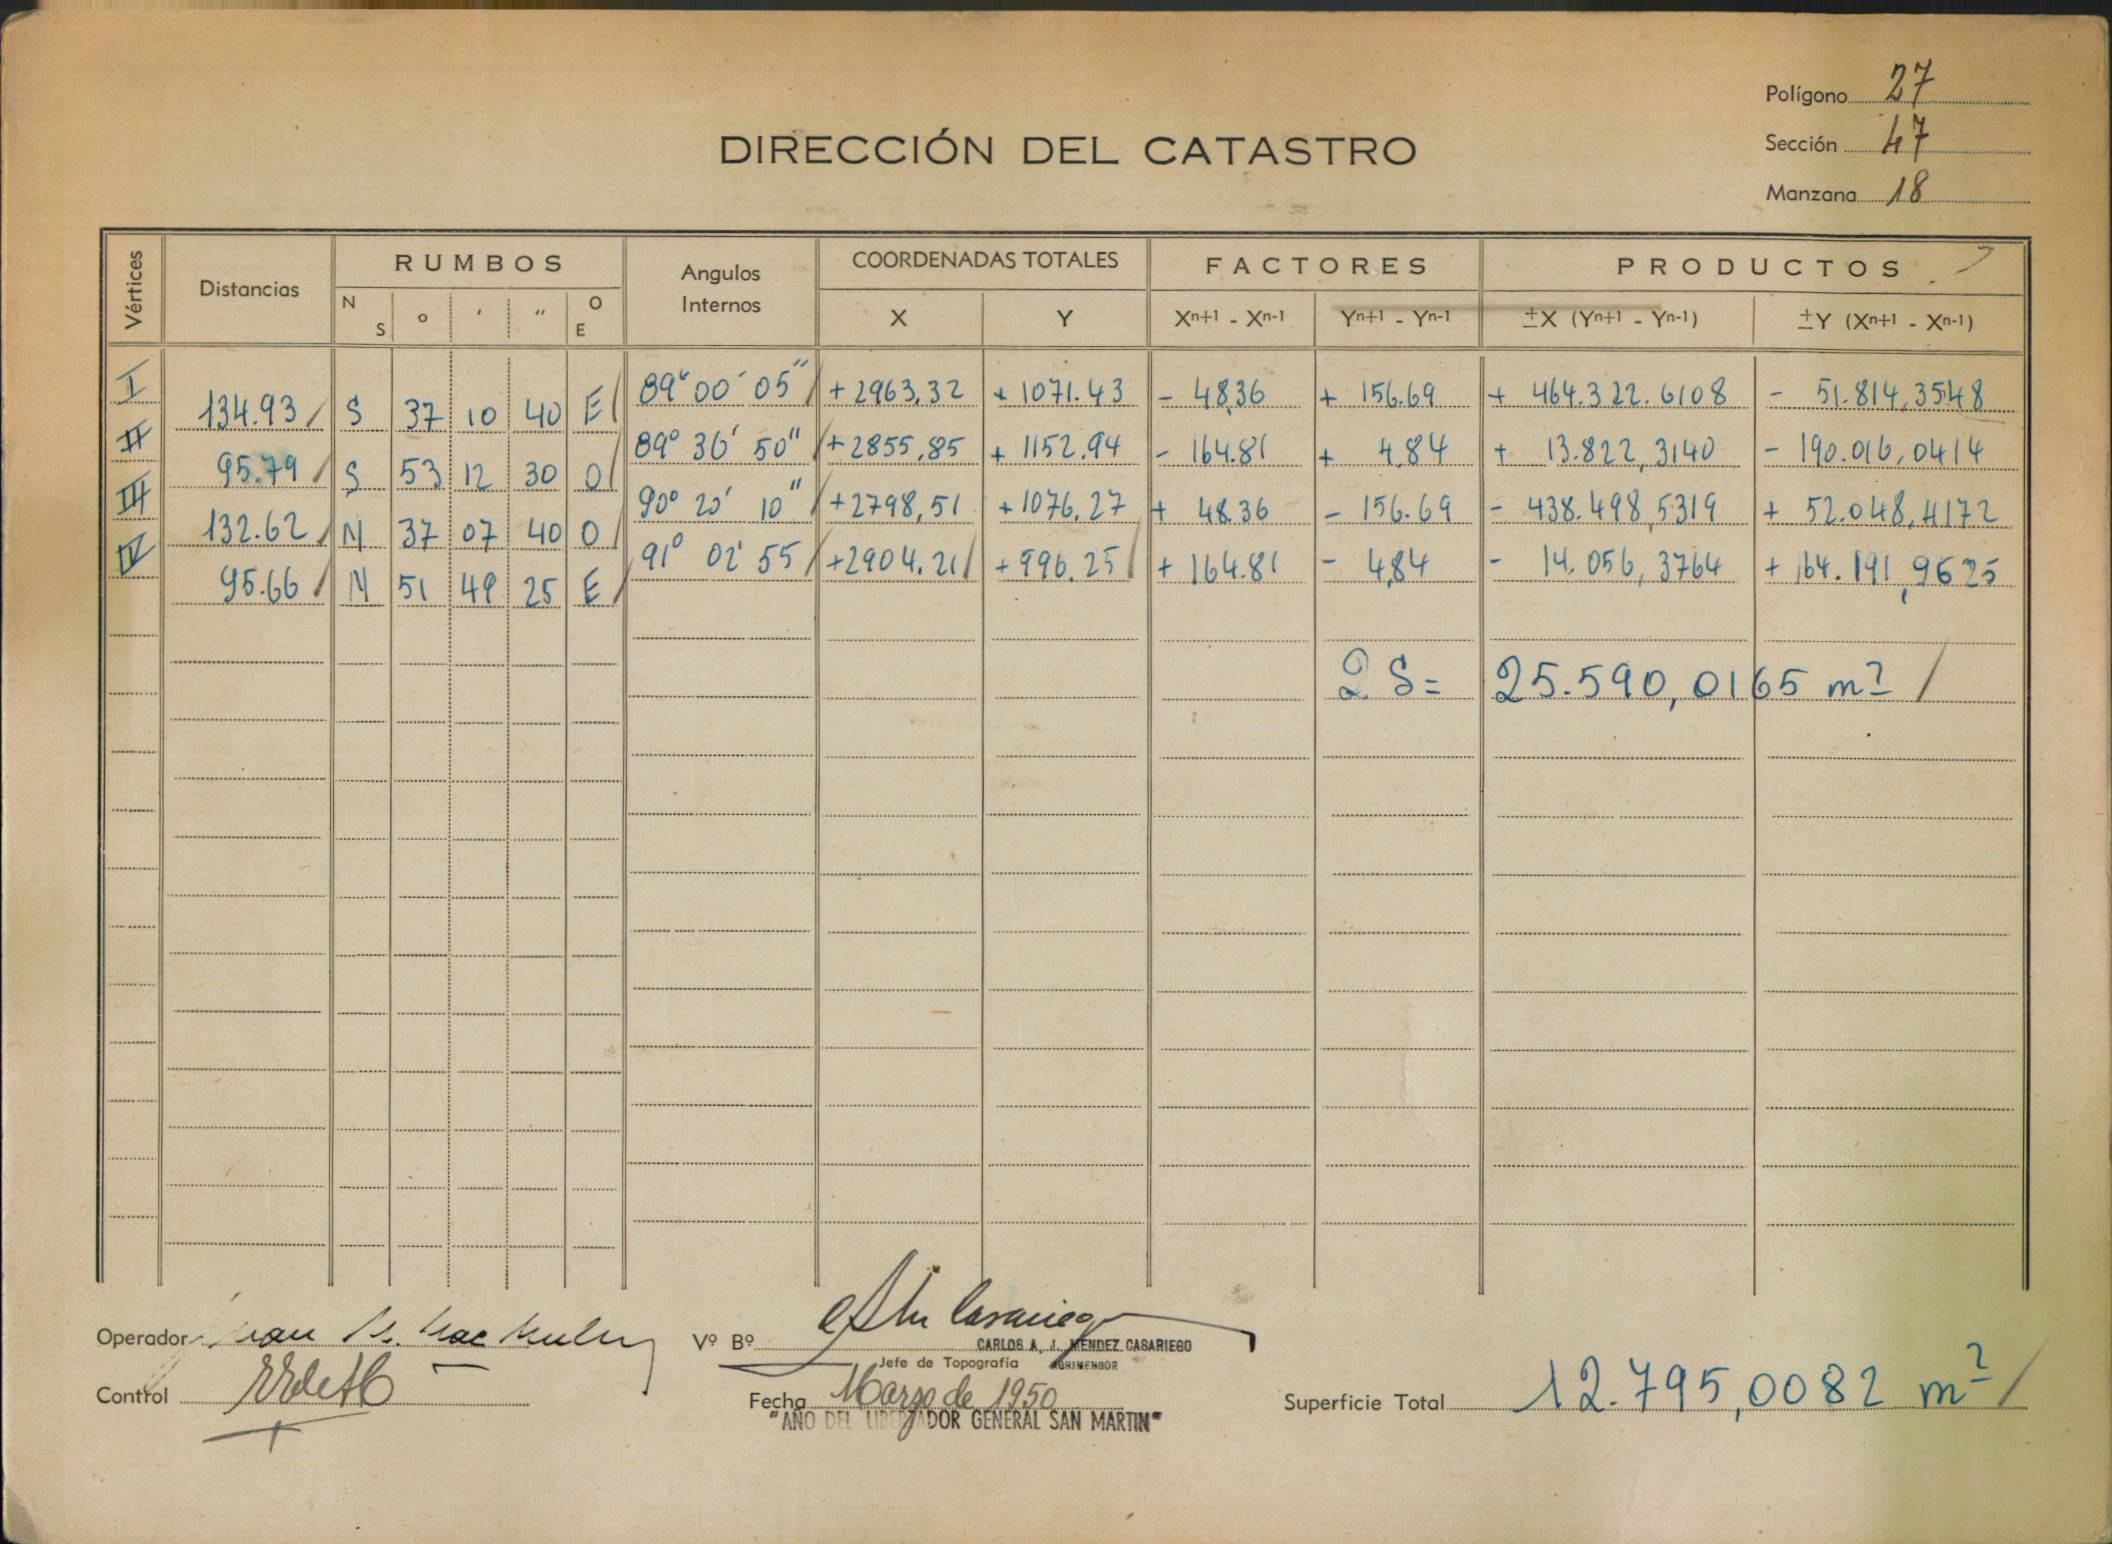 Polígono 27
Sección 47
Manzana 18
DIRECCIÓN DEL CATASTRO
Vértices Distancias RUMBOS Angulos Internos COORDENADAS TOTALES FACTORES PRODUCTOS
N S ° ′ ″ O E X Y Xn+1 - Xn-1 Yn+1 - Yn-1 ±X (Yn+1 - Yn-1) ±Y (Xn+1 - Xn-1)
I 89° 00′ 05″ +2963,32 + 1071.43 - 48,36 + 156.69 + 464.322.6108 - 51.814,3548
134.93 S 37 10 40 E
II 89° 36′ 50″ +2855,85 + 1152.94 - 164.81 + 4,84 + 13.822,3140 - 190.016,0414
95.79 S 53 12 30 O
III 90° 20′ 10″ +2798,51 +1076,27 + 48.36 - 156.69 - 438.498,5319 + 52.048,4172
132.62 N 37 07 40 O
IV 91° 02′ 55 +2904,21 +996,25 + 164.81 - 4,84 - 14.056,3764 + 164.191,9625
95.66 N 51 49 25 E
2 S = 25.590,0165 m2
Operador
Vº Bº
CARLOS A. J. MENDEZ CASARIEGO
Jefe de Topografía AGRIMENSOR
Control
Fecha Marzo de 1950
"AÑO DEL LIBERTADOR GENERAL SAN MARTIN"
Superficie Total 12.795,0082 m2